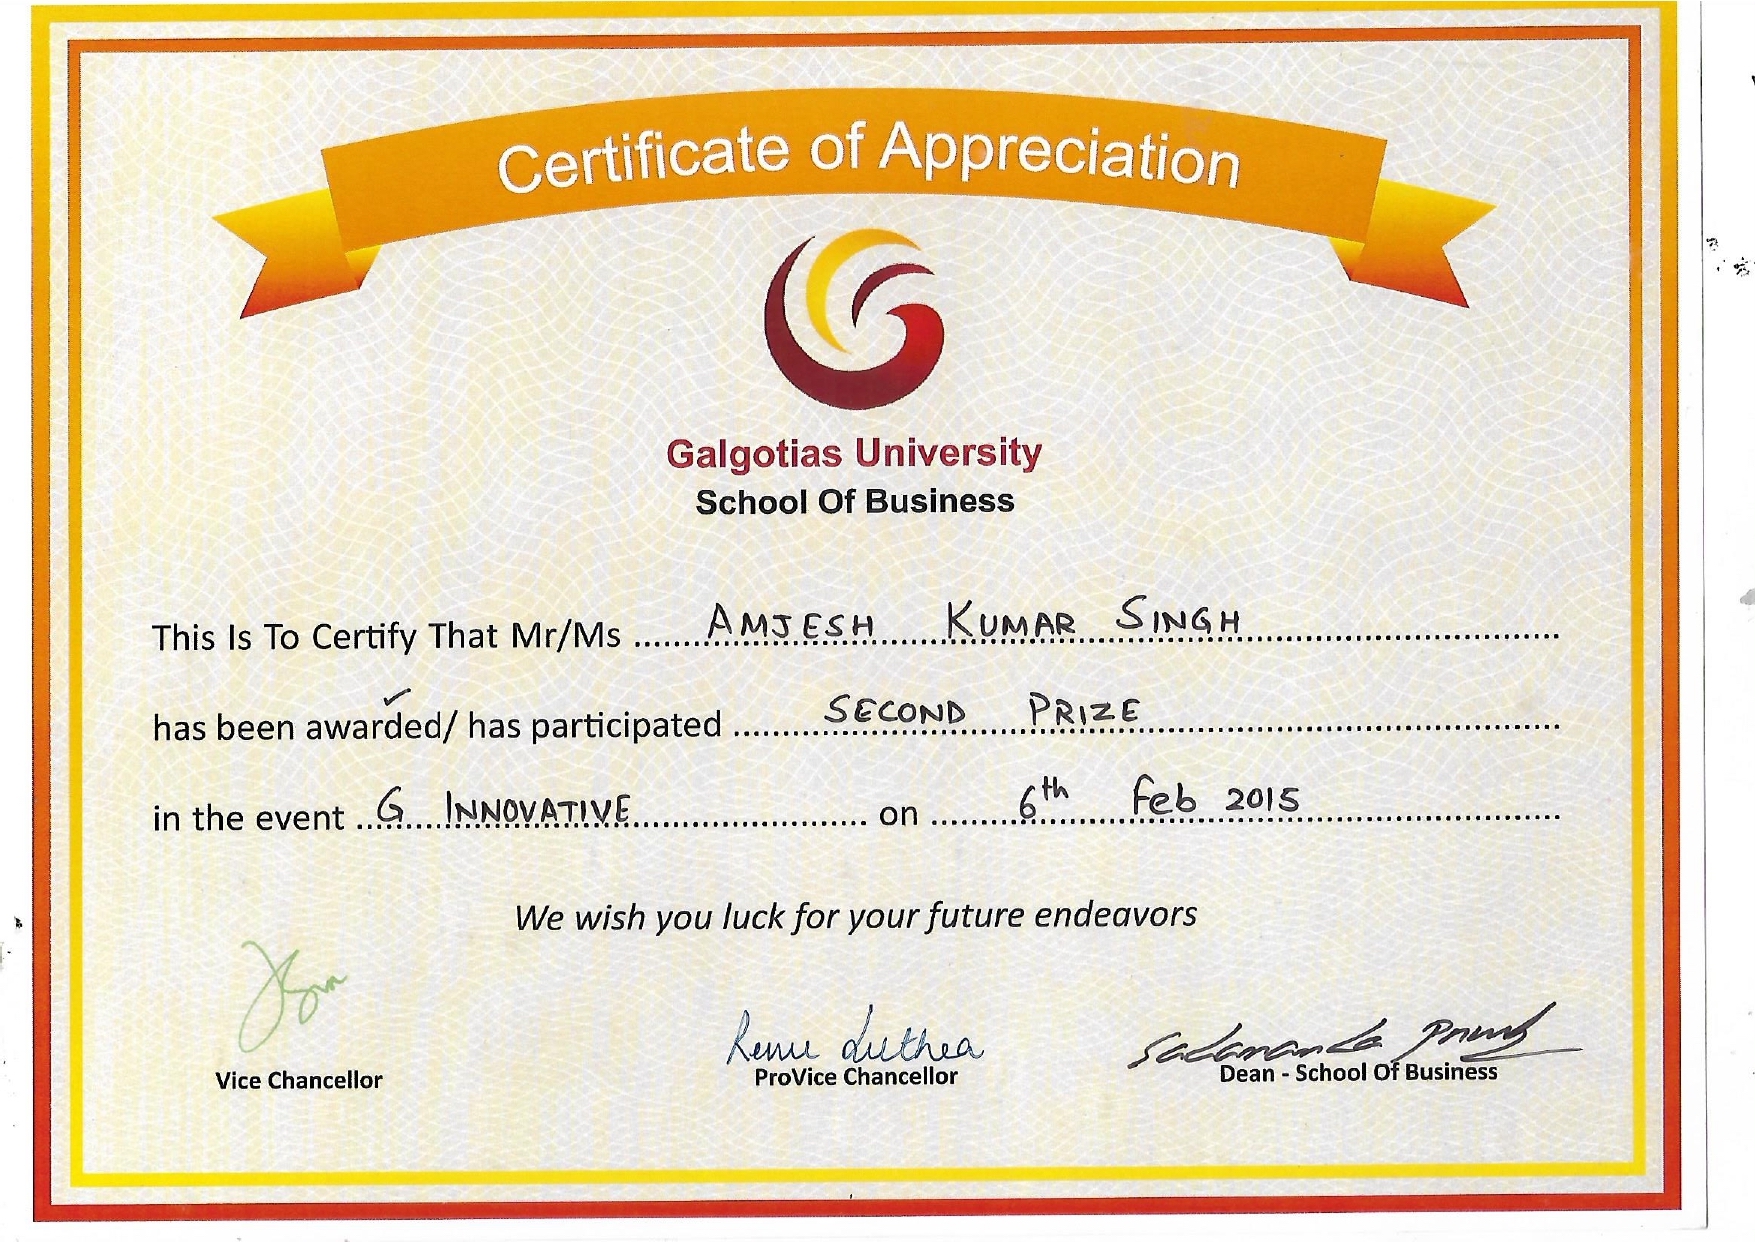 Certificate of Appreciation
Galgotias University
School Of Business
This Is To Certify That Mr/Ms ......AMJESH KUMAR SINGH......
has been awarded/ has participated ......SECOND PRIZE......
in the event ...G INNOVATIVE...... on ......6th Feb 2015......
We wish you luck for your future endeavors
Renu Luthra
Sadananda
Vice Chancellor
ProVice Chancellor
Dean - School Of Business